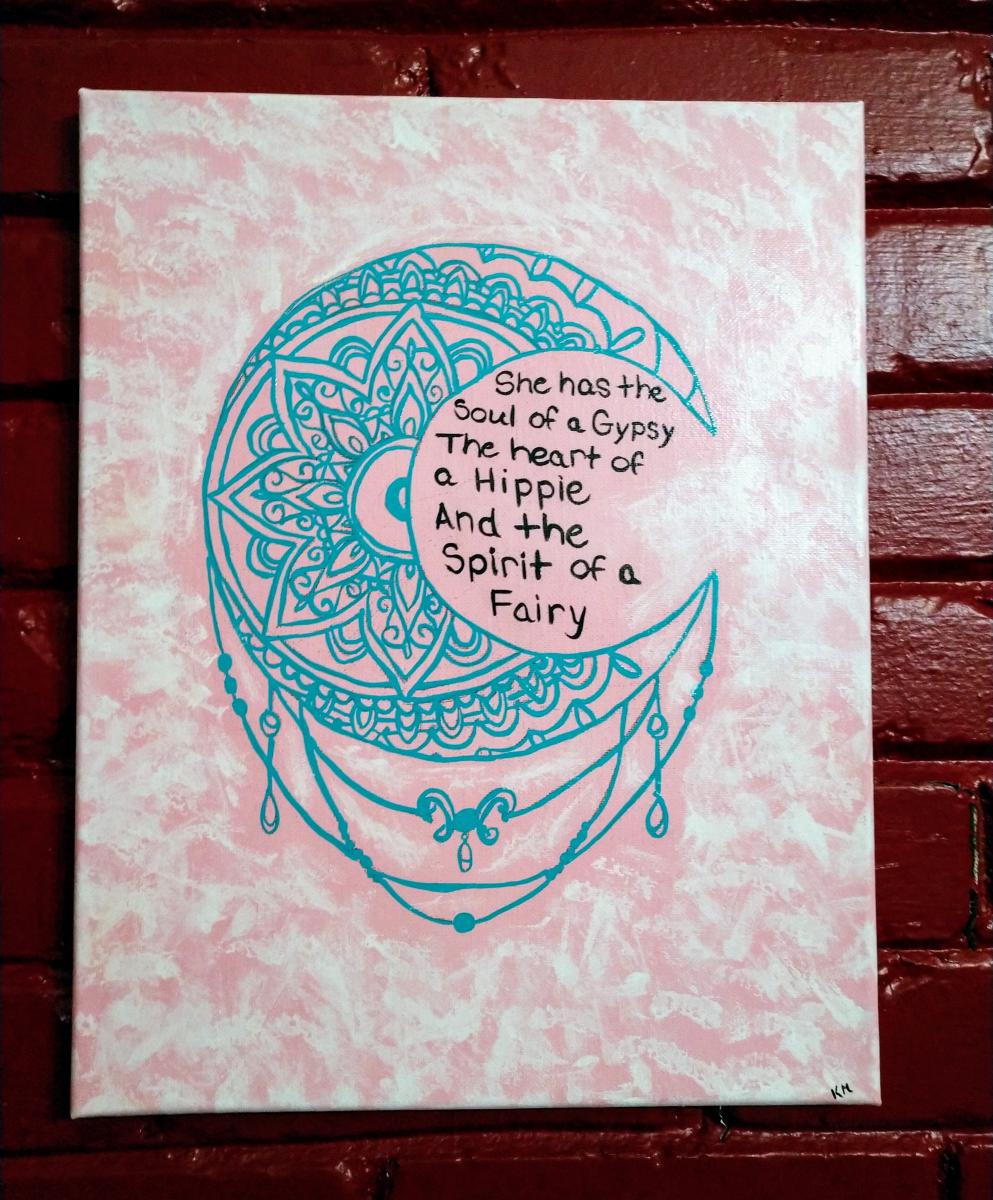 She has the
Soul of a Gypsy
The heart of
a Hippie
And the
Spirit of a
Fairy
KM